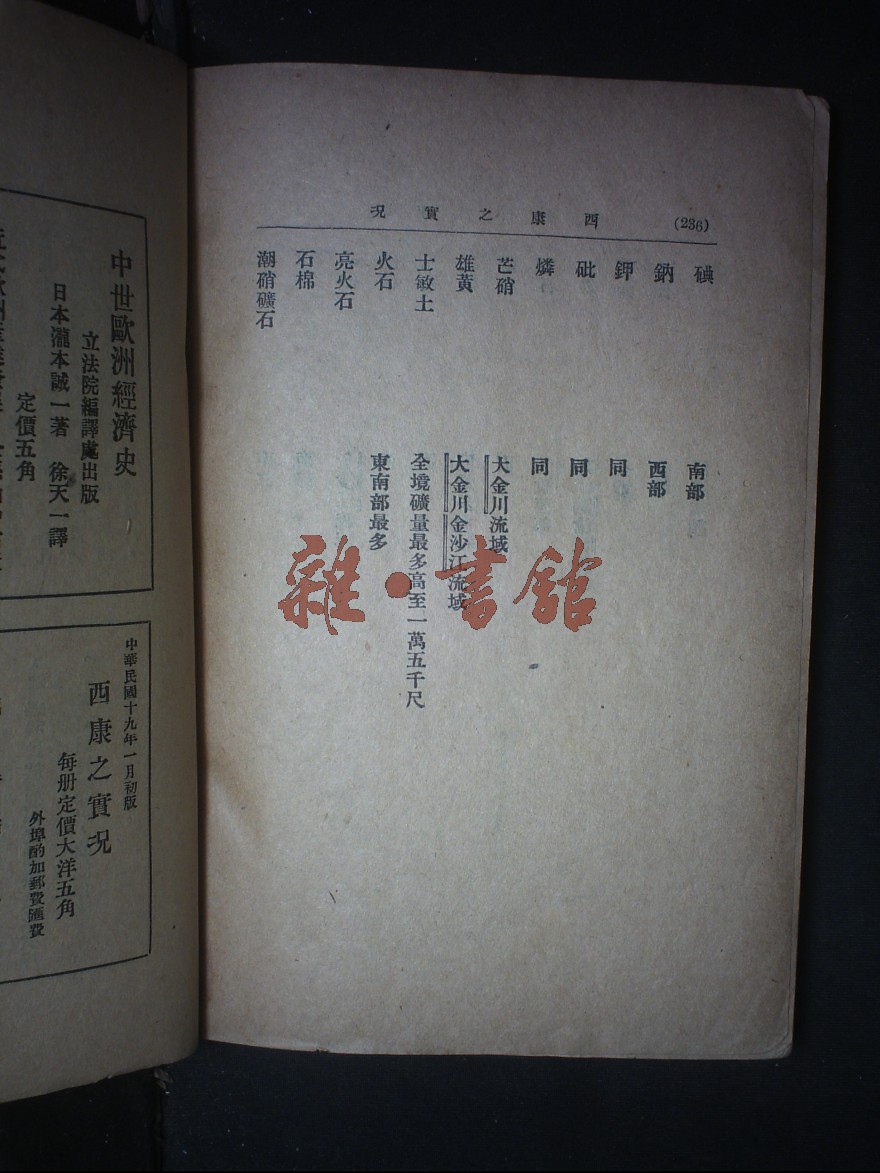 (236)
西康之實況
碘 南部
鈉 西部
鉀 同
砒 同
燐 同
芒硝 大金川流域
雄黃 大金川金沙江流域
士敏土 全境礦量最多高至一萬五千尺
火石 東南部最多
亮火石
石棉
潮硝礦石
雜·書館
中世歐洲經濟史
立法院編譯處出版
日本瀧本誠一著 徐天一譯
定價五角
中華民國十九年一月初版
西康之實況
每册定價大洋五角
外埠酌加郵費匯費